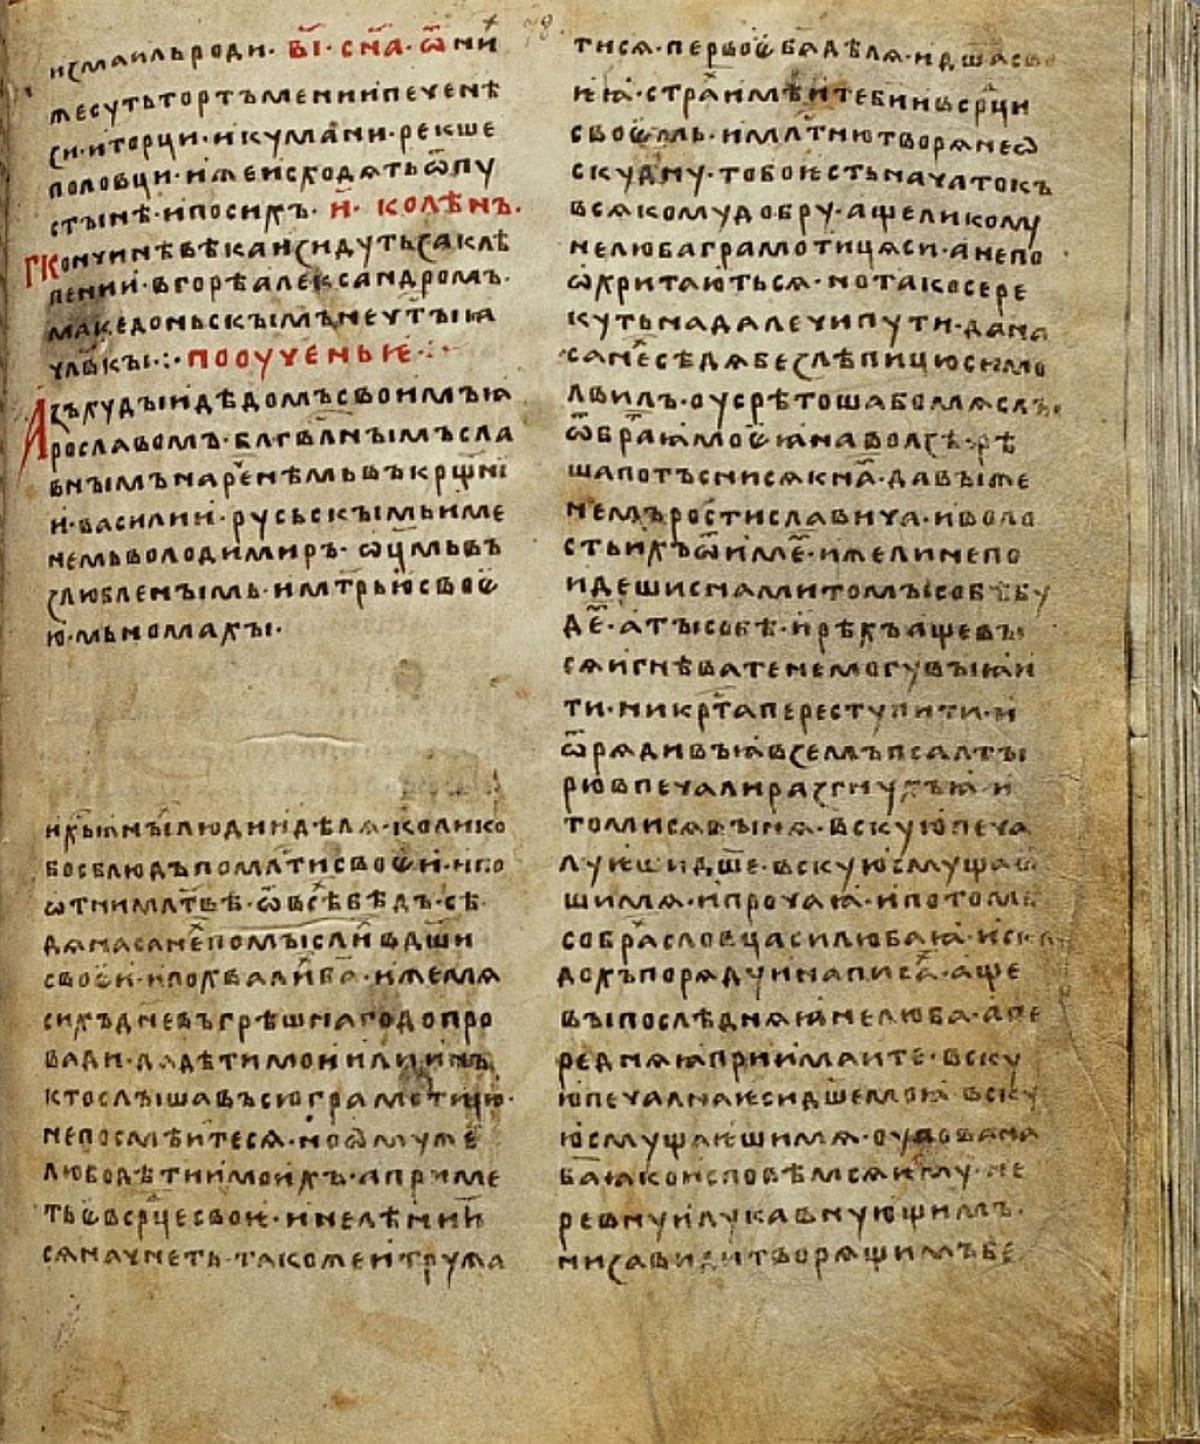 измаильроди· в҃і· сн҃а· ѿни
жесутьтортъмениипеченѣ
зи·иторци·икумани·рекше
половци·ижеисходѧтьѿпу
стынѣ·ипосихъ· и҃· колѣнъ·
кончинѣвѣкаизидутьзаклѣ
пении·вгорѣалександромъ·
македоньскымъ·нечс̑тыꙗ
члв҃кы·:· поꙋченьѥ·:·
Азъхудыидѣдомъсвоимъꙗ
рославомъ·блгв҃лнымъсла
внымънарѣ̑нѣмьвъкрщ҃ні
и·василии·русьскымьиме
немьволодимиръ·ѡц҃мьвъ
злюбленымь·имтр҃ьюсвоѥ
ю·мьномахы·
ихрьꙗныхлюдиидѣлѧ·колико
босблюдъпомлс̑тисвоѥи·ипо
ѡтнимлтв҃ѣ·ѿвсѣхъбѣдъ·сѣ
дѧнасанехъпомыслихъвдш҃и
своѥи·ипохвалихъба҃·ижемѧ
сихъдневъгрѣшнагодопро
вади·дадѣтимоиилиинъ
ктослышавъсюграмотицю·
непосмѣитесѧ·ноѡмужѐ
люборѣтиимоихъ·априме
тьѥвсрц҃есвоѥ·инелѣнити
сѧначнеть·такожеитружа
тисѧ·первоѥба҃дѣлѧ·идш҃асво
ѥꙗ·страхъимѣитеби҃ивсрц҃и
своѥмь·имлс̑тнютворѧнеѡ
скудну·тобоѥстьначатокъ
всѧкомудобру·ащеликому
нелюбаграмотицѧси·анепо
ѡхритаютьсѧ·нотакосере
куть·надалечипути·дана
санехъсѣдѧбезлѣпицюсимо
лвилъ·оусрѣтошабомѧслъ
ѿбра҃ꙗмоѥꙗнаволзѣ·рѣ
шапотъснисѧкна҃·давыже
немъростиславича·иволо
стьихъѿиме̑·ижелинепо
идешиснамитомысобѣбу
де̑·атысобѣ·ирѣхъащевы
сѧигнѣватенемогувыꙗи
ти·никрс̑тапереступити·и
ѿрѧдивъꙗвземъпсалты
рювпечалиразгнухъꙗ·и
томисѧвынѧ·вскуюпеча
луѥшидш҃е·вскуюсмущаѥ
шимѧ·ипрочаꙗ·ипотомь
собрахъсловцасилюбаꙗ·искла
дохъпорѧдуинаписа̑·аще
выпослѣднѧꙗнелюба·апе
реднѧꙗприимаите·вску
юпечалнаѥсидш҃емоꙗ·вску
юсмущаѥшимѧ·оуповаина
ба҃ꙗкоисповѣмсѧѥму·не
ревнуилукавнующимъ·
низавидитворѧщимъбе